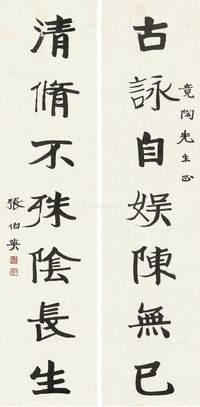 古詠自娛陳無已
竟陶先生正
清脩不殊陰長生
張伯英